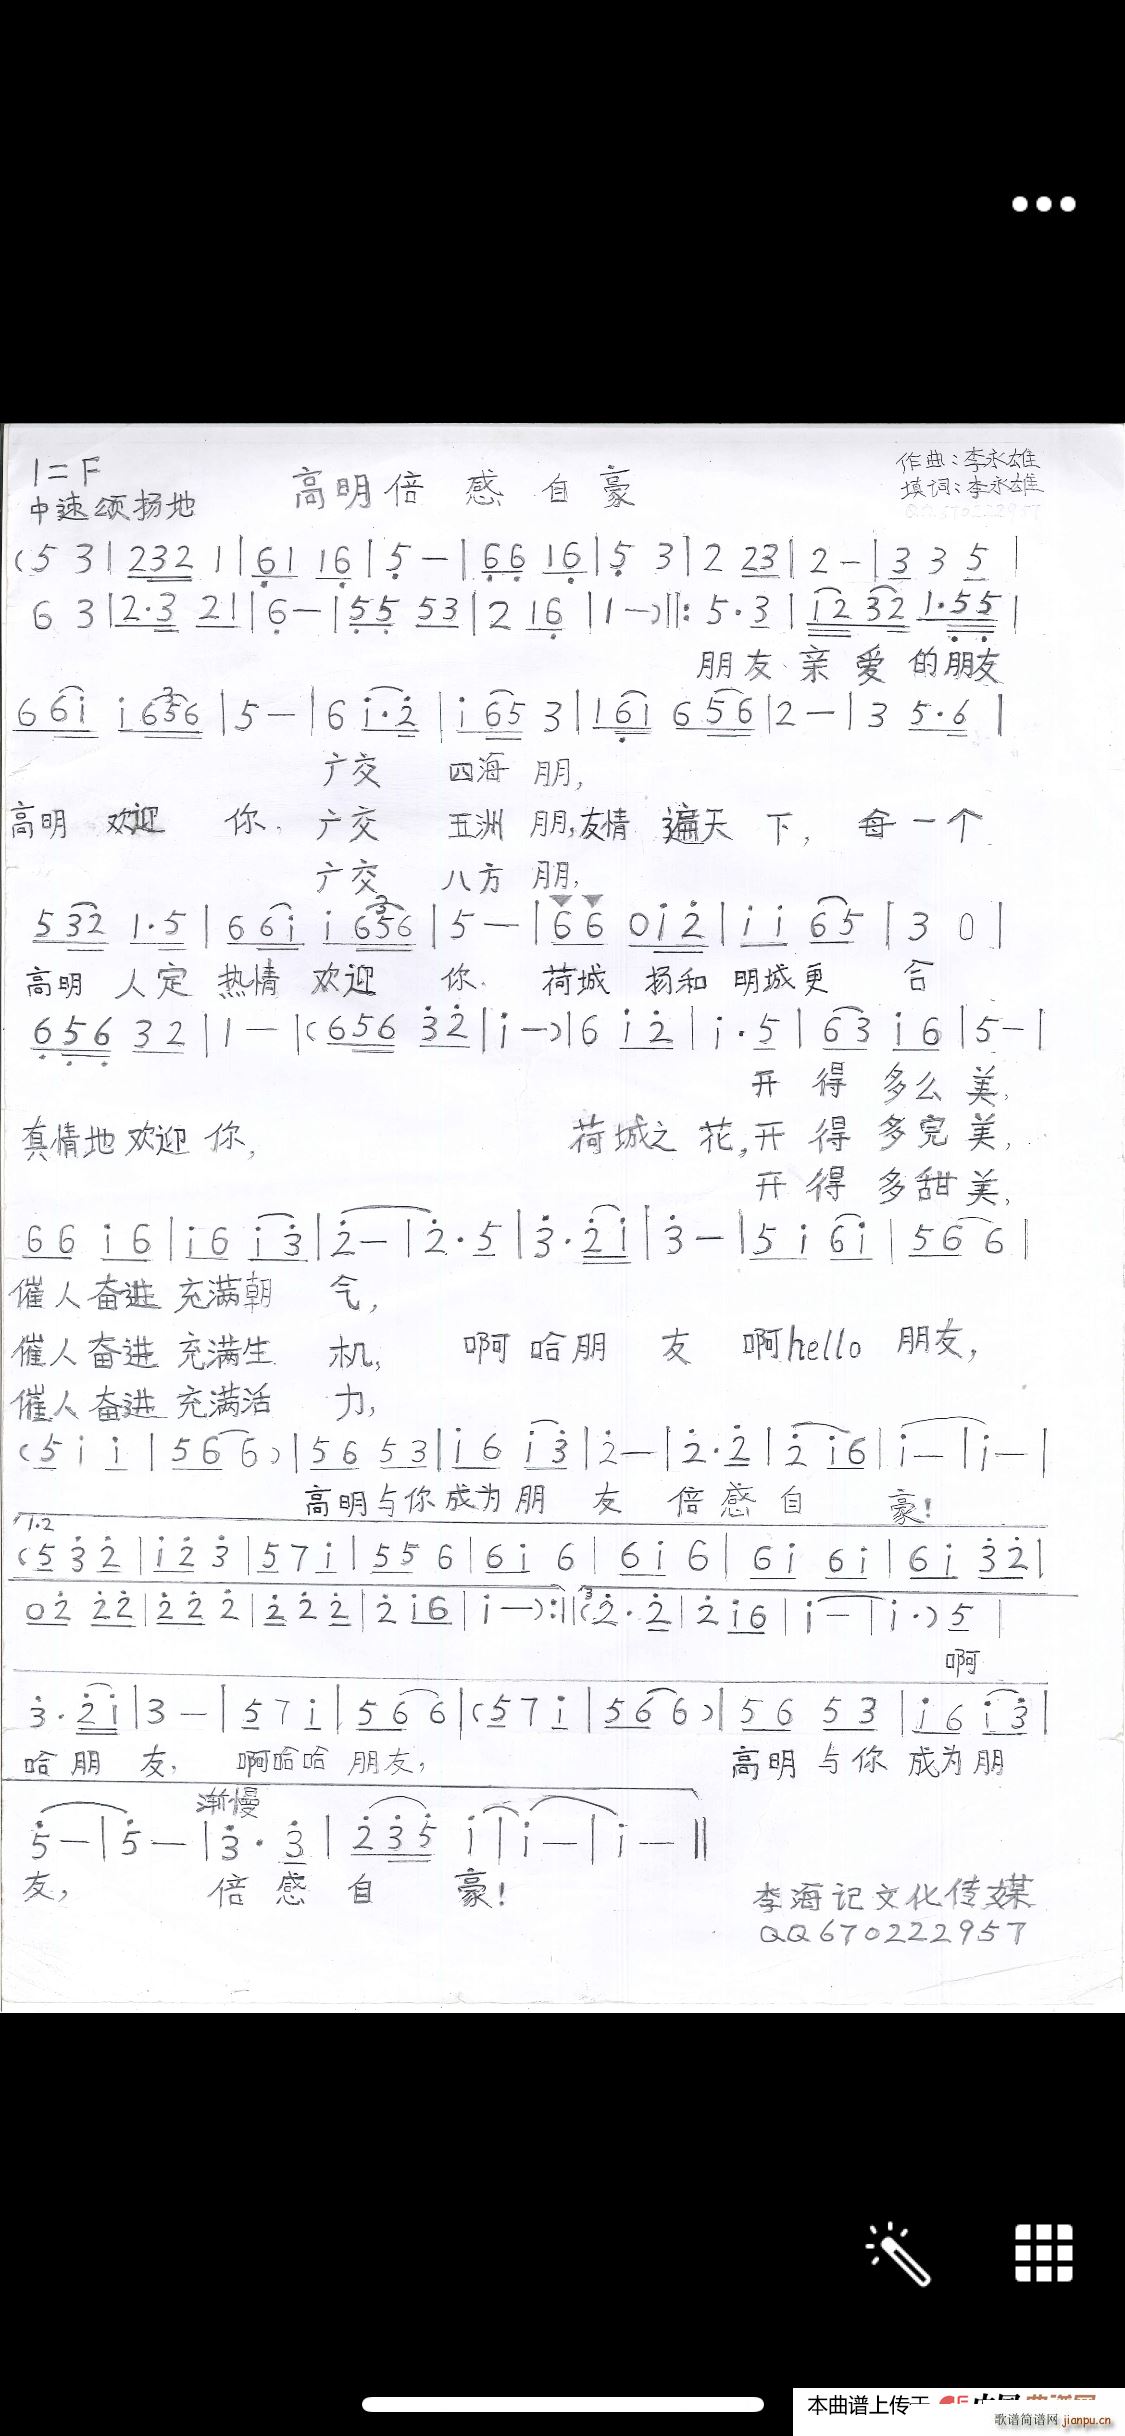 1=F
高明倍感自豪
作曲:李永雄
中速颂扬地
填词:李永雄
(5 3 | 232 1 | 61 16 | 5 — | 66 16 | 5 3 | 2 23 | 2 — | 3 3 5 |
6 3 | 2·3 21 | 6 — | 55 53 | 2 16 | 1 —) ‖: 5·3 | i2 32 1·55 |
朋友 亲 爱 的朋友
6 6i i 656 | 5 — | 6 i·2 | i 65 3 | 1 61 6 56 | 2 — | 3 5·6 |
广交 四海 朋,
高明 欢迎 你. 广交 五洲 朋,友情 遍天 下, 每一个
广交 八方 朋,
5 32 1·5 | 6 6i i 656 | 5 — | 66 0i2 | i i 65 | 3 0 |
高明 人定 热情 欢迎 你. 荷城 扬和 明城更 合
656 32 | 1 — | (656 32 | i —) | 6 i2 | i·5 | 63 i6 | 5 — |
开 得 多么 美,
真情地欢迎你, 荷城之 花,开 得 多完 美,
开 得 多甜 美,
66 i6 | i6 i3 | 2 — | 2·5 | 3·2i | 3 — | 5 i 6i | 56 6 |
催人奋进 充满朝 气,
催人奋进 充满生 机, 啊 哈朋 友 啊hello 朋友,
催人奋进 充满活 力,
(5 i i | 56 6) | 56 53 | i6 i3 | 2 — | 2·2 | 2 i6 | i — | i — |
高明与你成为朋 友 倍感自 豪!
1.2
(5 3 2 | i 2 3 | 5 7 i | 55 6 | 6i 6 | 6i 6 | 6i 6i | 6i 32 |
02 22 | 22 2 | 2 2 2 | 2 i6 | i —) :‖ 3 (2·2 | 2 i6 | i — | i·) 5 |
啊
3·2i | 3 — | 5 7 i | 56 6 | (5 7 i | 56 6) | 56 53 | i6 i3 |
哈朋 友, 啊哈哈 朋友, 高明 与你 成为朋
渐慢
5 — | 5 — | 3·3 | 2 35 i | i — | i — ‖
友, 倍感 自 豪!
李海记文化传媒
QQ670222957
本曲谱上传于
歌谱简谱网 jianpu.cn